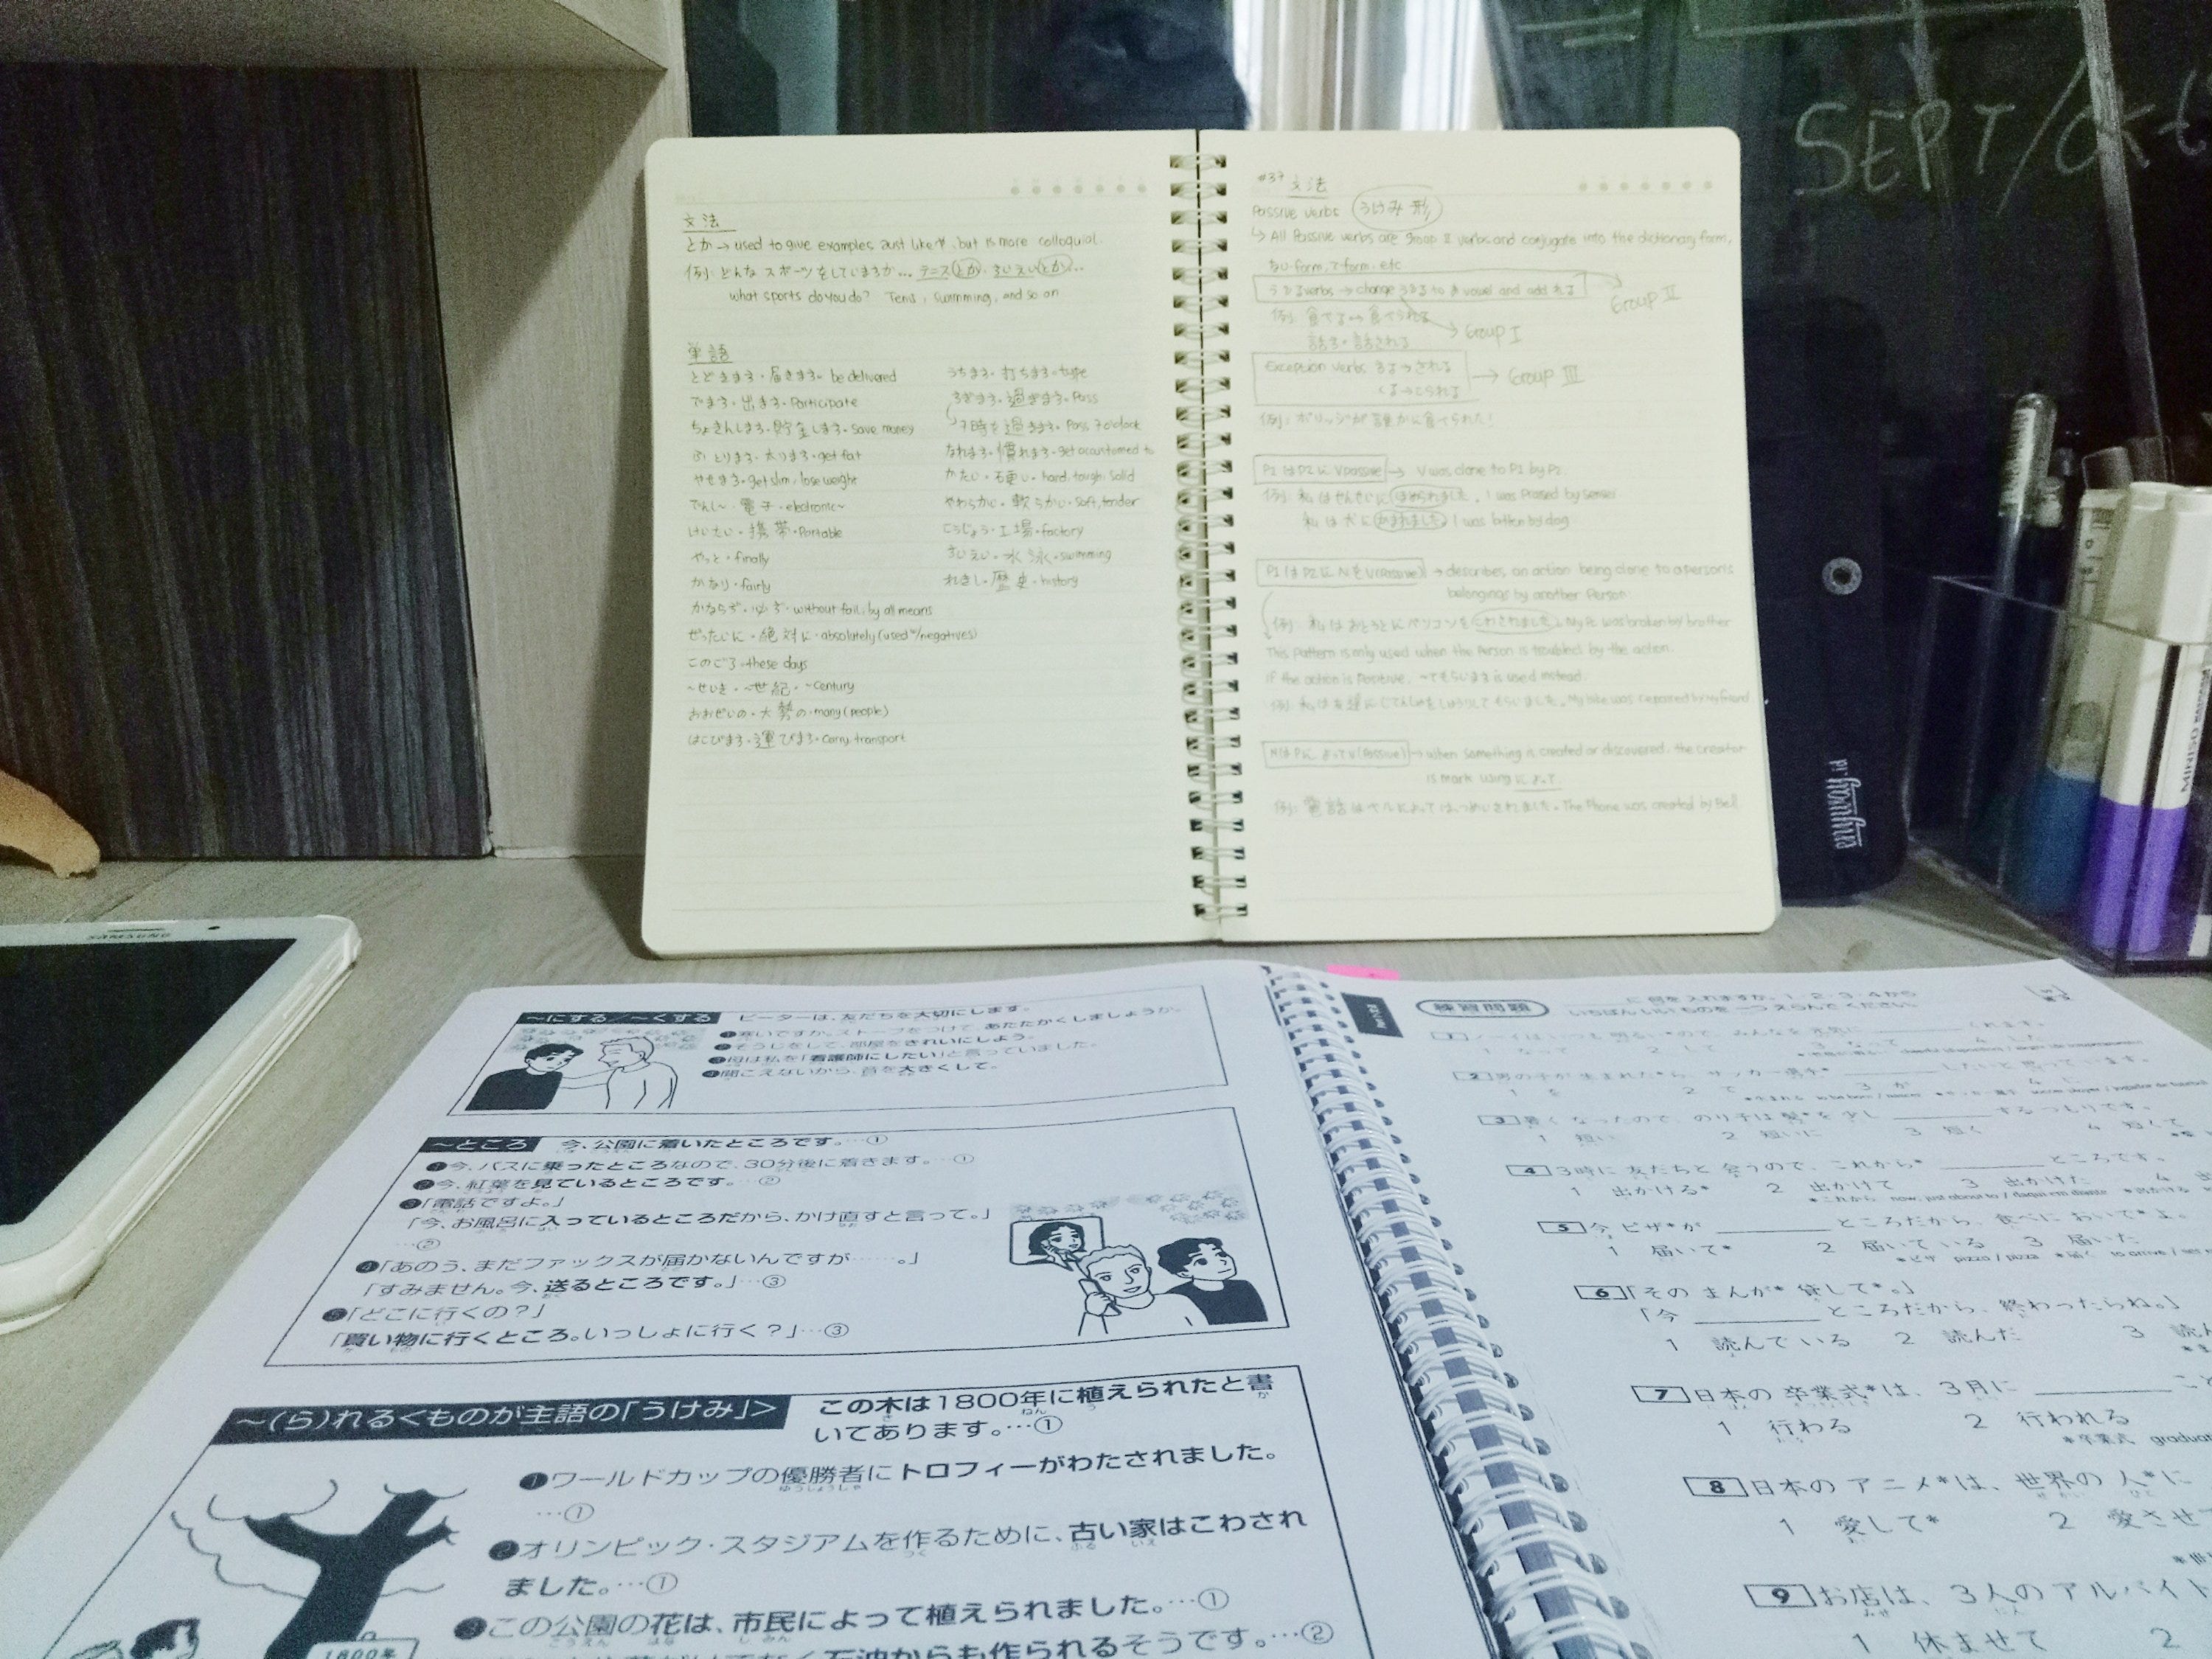 SEPT/Okt
文法
とか→used to give examples Just like や, but is more colloquial.
例: どんなスポーツをしていますか... テニスとか、すいえいとか..
what sports do you do? Tenis, swimming, and so on
単語
とどきます・届きます・be delivered
でます・出ます・Participate
ちょきんします・貯金します・save money
ふとります・太ります・get fat
やせます・get slim, lose weight
でんし~・電子・electronic~
けいたい・携帯・Portable
やっと・finally
かなり・fairly
かならず・必ず・without fail, by all means
ぜったいに・絶対に・absolutely (used w/negatives)
このごろ・these days
~せいき・~世紀・~century
おおぜいの・大勢の・many (people)
はこびます・運びます・carry, transport
うちます・打ちます・type
すぎます・過ぎます・Pass
7時を過ぎます・Pass 7 o'clock
なれます・慣れます・get acustomed to
かたい・硬い・hard, tough, solid
やわらかい・軟らかい・soft, tender
こうじょう・工場・factory
すいえい・水泳・swimming
れきし・歴史・history
#37 文法
Passive verbs うけみ形
↳ All Passive verbs are Group II verbs and conjugate into the dictionary form,
ない form, て form, etc
verbs → change to あ vowel and add れる
Group II
例: 食べる→食べられる
Group I
話す・話される
Exception verbs する→される
くる→こられる
→ Group III
例: ポリッジが誰かに食べられた!
P1 は P2 に V passive → V was done to P1 by P2.
例: 私はせんせいにほめられました. I was Prased by sensei
私は犬にかまれました. I was bitten by dog
P1 は P2 に N を V (Passive) → describes an action being done to a person's
belongings by another Person.
例: 私はおとうとにパソコンをこわされました. My Pc was broken by brother
This Pattern is only used when the Person is troubled by the action.
If the action is Positive, ~てもらいます is used instead.
My bike was repaired by my friend
N は P によって V (Passive) → when something is created or discovered, the creator
is mark using によって.
例: 電話はベルによってはつめいされました. The Phone was created by Bell.
enyway.id
MINISO
SAMSUNG
~にする/~くする ピーターは、友だちを大切にします。
❶寒いですか。ストーブをつけて あたたかくしましょうか。
❷そうじをして、部屋をきれいにしよう。
❸母は私を「看護師にしたい」と言っていました。
❹聞こえないから、音を大きくして。
~ところ 今、公園に着いたところです。…①
❶今、バスに乗ったところなので、30分後に着きます。…①
❷今、紅葉を見ているところです。…②
❸「電話ですよ。」
「今、お風呂に入っているところだから、かけ直すと言って。」
…②
❹「あのう、まだファックスが届かないんですが……。」
「すみません。今、送るところです。」…③
❺「どこに行くの?」
「買い物に行くところ。いっしょに行く?」…③
~(ら)れる<ものが主語の「うけみ」> この木は1800年に植えられたと書
いてあります。…①
❶ワールドカップの優勝者にトロフィーがわたされました。
…①
❷オリンピック・スタジアムを作るために、古い家はこわされ
ました。…①
❸この公園の花は、市民によって植えられました。…①
石油からも作られるそうです。…②
1800年
練習問題 ＿＿に何を入れますか。1、2、3、4から
いちばん いい ものを 一つ えらんで ください。
2 男の子が 生まれた*ら、サッカー選手* ＿＿ したいと 思って います。
1 を 2 て 3 が 4 に
3 暑く なったので、のり子は 髪*を 少し ＿＿ するつもりです。
1 短い 2 短いに 3 短く 4 短くて
4 3時に 友だちと 会うので、これから* ＿＿ ところです。
1 出かける* 2 出かけて 3 出かけた 4 出
5 今 ピザ*が ＿＿ ところだから、食べに おいで*よ。
1 届いて* 2 届いて いる 3 届いた
*ピザ pizza / pizza *届く to arrive
6 「その まんが* 貸して*。」
「今 ＿＿ ところだから、終わったらね。」
1 読んで いる 2 読んだ 3 読
7 日本の 卒業式*は、3月に ＿＿ こと
1 行わる 2 行われる
*卒業式 graduat
8 日本の アニメ*は、世界の 人*に
1 愛して* 2 愛させ
9 お店は、3人の アルバイト
1 休ませて 2